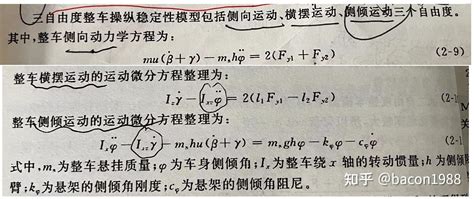 三自由度整车操纵稳定性模型包括侧向运动、横摆运动、侧倾运动三个自由度。
其中,整车侧向动力学方程为:
mu(β̇+γ)-mₛhφ̈=2(F_y1+F_y2) (2-9)
整车横摆运动的运动微分方程整理为:
I_zγ̇-I_xzφ̈=2(l₁F_y1-l₂F_y2) (2-1
整车侧倾运动的运动微分方程整理为:
I_xφ̈-I_xzγ̇-mₛhu(β̇+γ)=mₛghφ-k_φφ-c_φφ̇ (2-1
式中,mₛ为整车悬挂质量;φ为车身侧倾角;I_x为整车绕x轴的转动惯量;h为侧倾
臂;k_φ为悬架的侧倾角刚度;c_φ为悬架的侧倾角阻尼。
知乎 @bacon1988